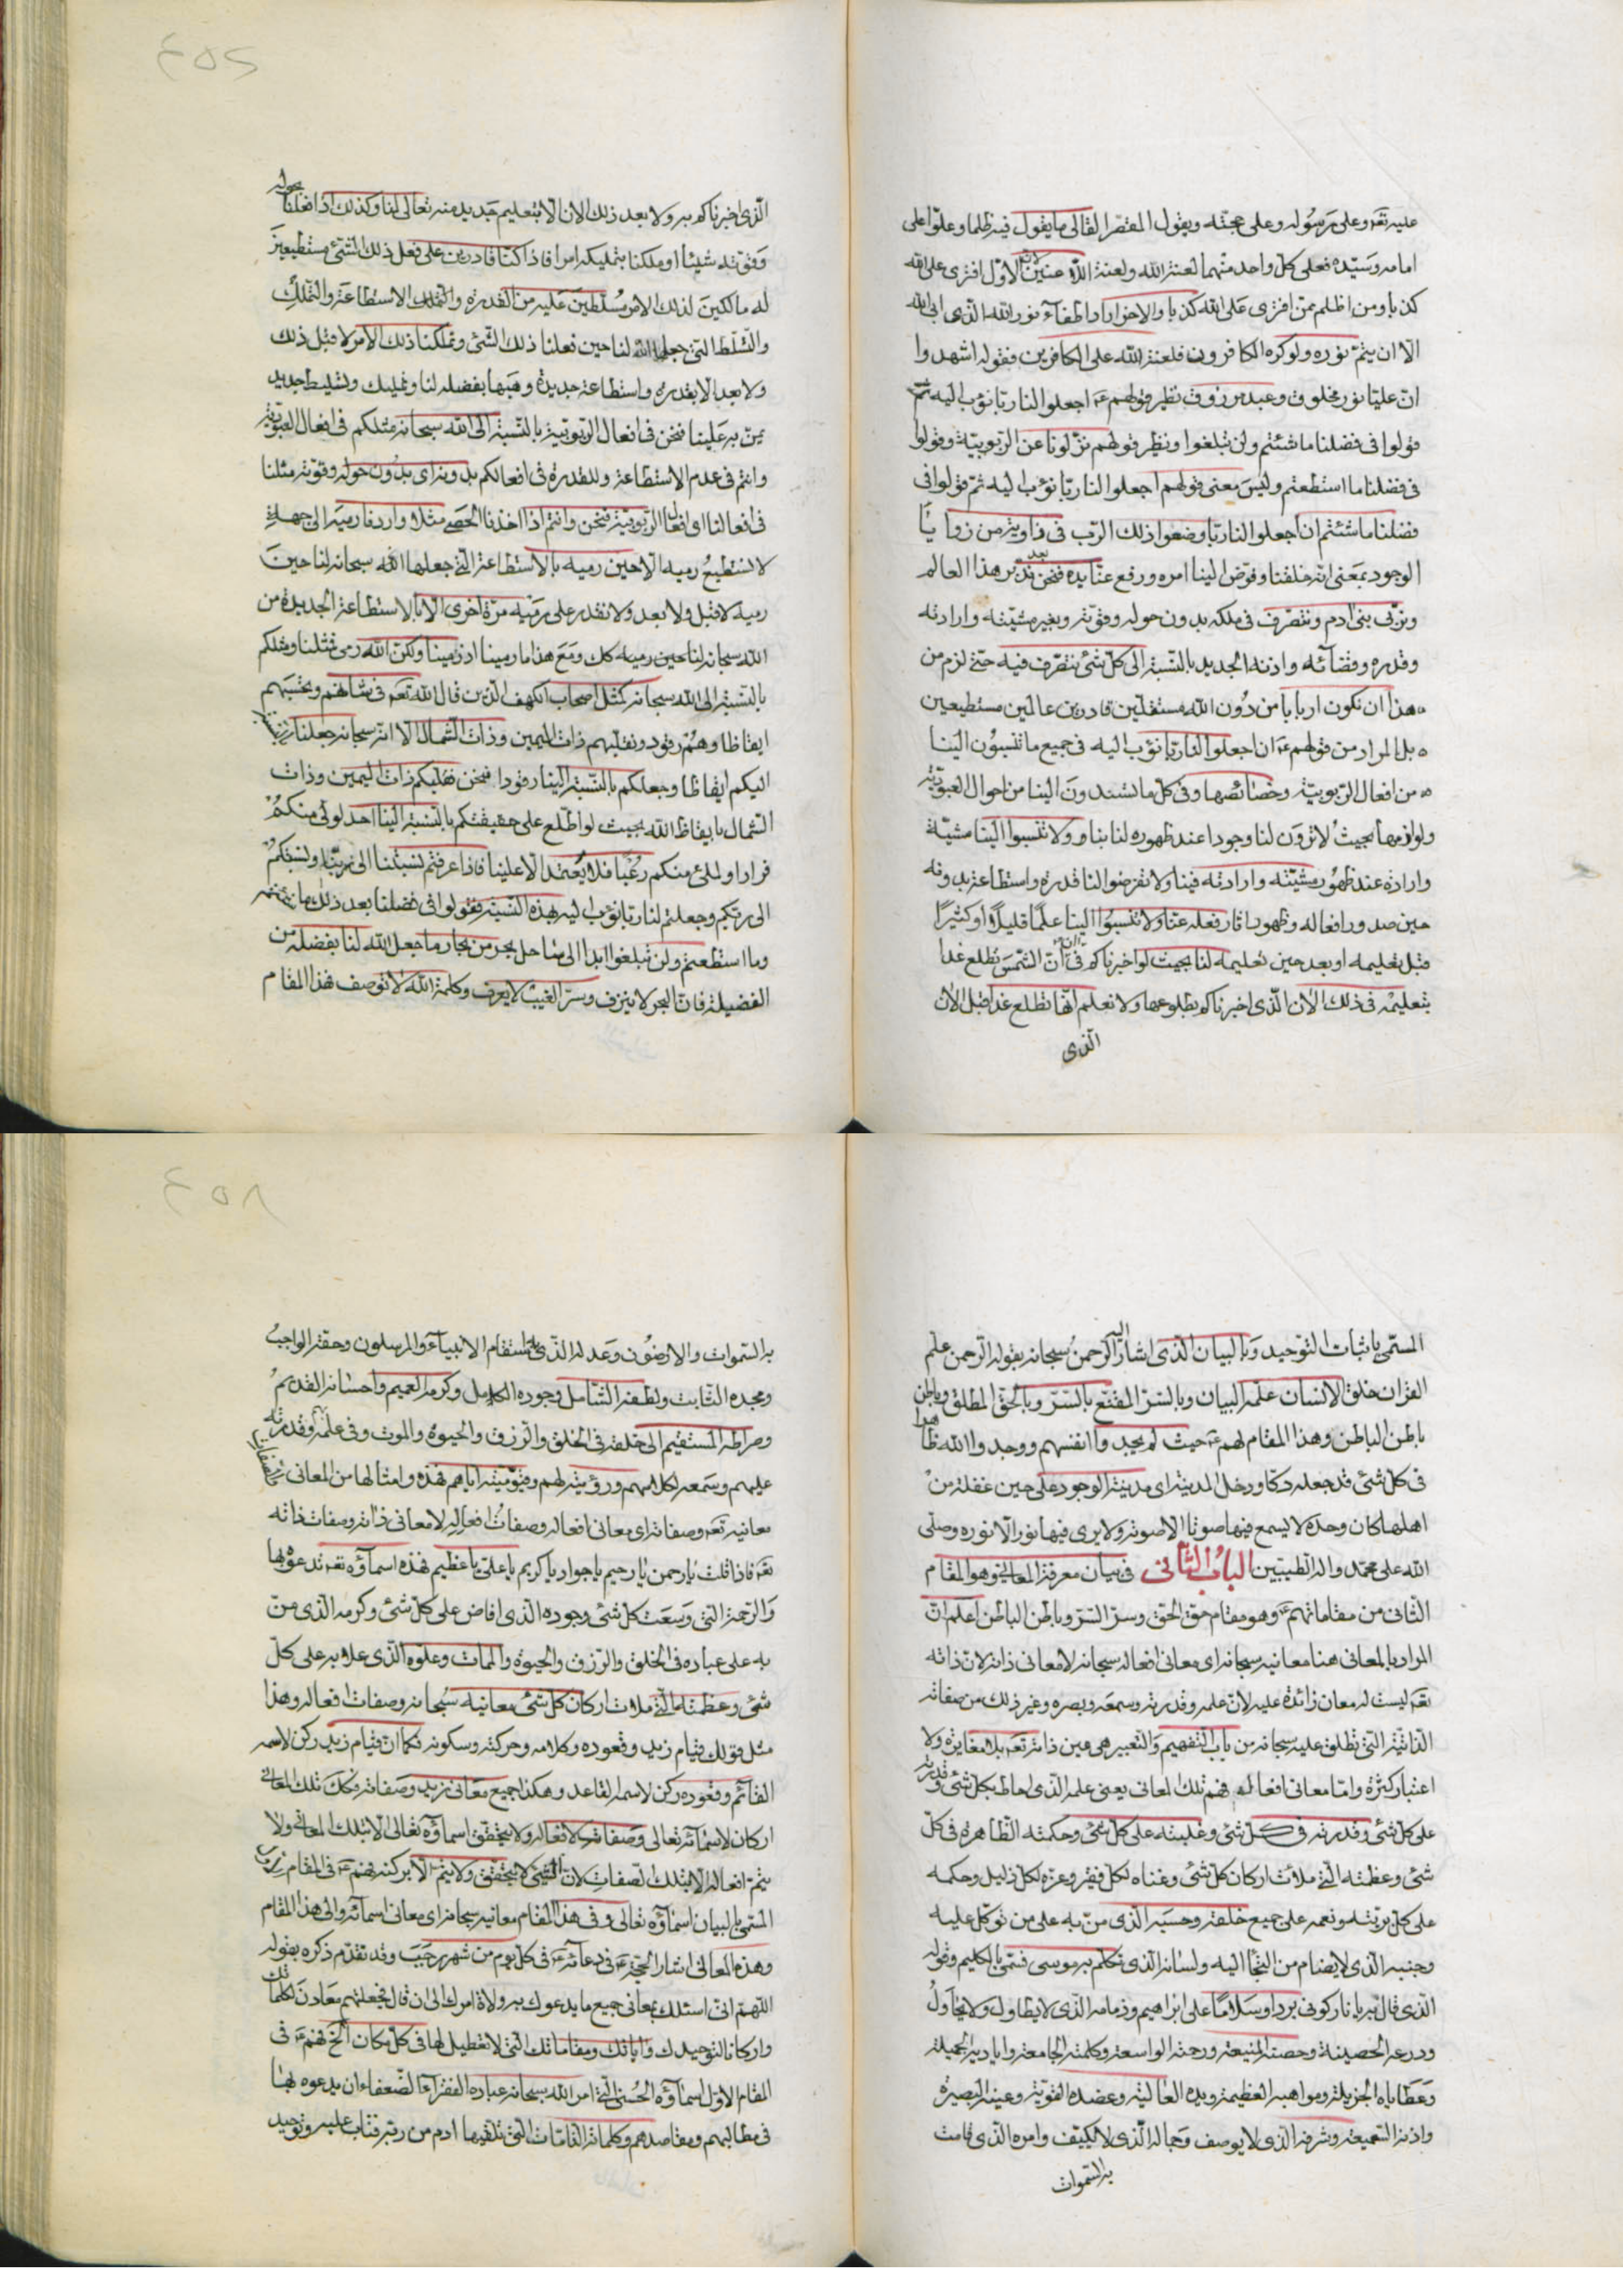 عليه تعه وعلى رسوله وعلى حجته ويقول المقصر القالى ما يقول فيه ظلما وعلوا على
امامه وسيده فعلى كل واحد منهما لعنة الله ولعنة اللاعنين لان الاول افترى على الله
كذبا ومن اظلم ممن افترى على الله كذبا والاخر اراد اطفاء نور الله الذى ابى الله
الا ان يتم نوره ولو كره الكافرون فلعنة الله على الكافرين فقوله اشهدوا
ان عليا نور مخلوق وعبد مرزوق نظير قولهم ع اجعلوا لنا ربا نؤب اليه ثم
قولوا فى فضلنا ما شئتم ولن تبلغوا ونظير قولهم نزلونا عن الربوبية وقولوا
فى فضلنا ما استطعتم وليس معنى قولهم اجعلوا لنا ربا نؤب اليه ثم قولوا فى
فضلنا ما شئتم ان اجعلوا لنا ربا وضعوا ذلك الرب فى زاوية من زوايا
الوجود بمعنى انه خلقنا وفوض الينا امره ورفع عنا يده فنحن بعد ندبر هذا العالم
ونربى بنى ادم ونتصرف فى ملكه بدون حوله وقوته وبغير مشيته وارادته
وقدره وقضائه واذنه الجديد بالنسبة الى كل شئ نتصرف فيه حتى لزم من
هذا ان نكون اربابا من دون الله مستقلين قادرين عالمين مستطيعين
بل المراد من قولهم ع ان اجعلوا لنا ربا نؤب اليه فى جميع ما تنسبون الينا
من افعال الربوبية وخصائصها وفى كل ما تسندون الينا من احوال العبودية
ولوازمها بحيث لا ترون لنا وجودا عند ظهوره لنا بنا ولا تنسبوا الينا مشية
وارادة عند ظهور مشيته وارادته فينا ولا تفرضوا لنا قدرة واستطاعة بدونه
حين صدور افعاله وظهور اثار فعله عنا ولا تنسبوا الينا علما قليلا او كثيرا
قبل تعليمه او بعد حين تعليمه لنا بحيث لو اخبرناكم فى ان ان الشمس تطلع غدا
بتعليمه فى ذلك الان الذى اخبرناكم بطلوعها ولا نعلم انها تطلع غدا قبل الان
الذى
الذى اخبرناكم به ولا بعد ذلك الان الا بتعليم جديد منه تعالى لنا وكذلك اذا فعلنا بحوله
وقوته شيئا او ملكنا بتمليكه امرا فاذا كنا قادرين على فعل ذلك الشئ مستطيعين
له مالكين لذلك الامر مسلطين عليه من القدرة والتملك الاستطاعة والتملك
والتسلط التى جعلها الله لنا حين فعلنا ذلك الشئ وتملكنا ذلك الامر لا قبل ذلك
ولا بعد الا بقدرة واستطاعة جديدة وهبها بفضله لنا وتمليك وتسليط جديد
يمن به علينا فنحن فى افعال الربوبية بالنسبة الى الله سبحانه مثلكم فى افعال العبودية
وانتم فى عدم الاستطاعة والقدرة فى افعالكم بدونه اى بدون حوله وقوته مثلنا
فى افعالنا اى افعال الربوبية فنحن وانتم اذا اخذنا الحصى مثلا واردنا رميه الى جهة
لا نستطيع رميه الا حين رميه بالاستطاعة التى جعلها الله سبحانه لنا حين
رميه لا قبل ولا بعد ولا نقدر على رميه مرة اخرى الا بالاستطاعة الجديدة من
الله سبحانه لنا حين رميه كك ومع هذا ما رمينا اذ رمينا ولكن الله رمى فمثلنا ومثلكم
بالنسبة الى الله سبحانه كمثل اصحاب الكهف الذين قال الله تعه فى شانهم وتحسبهم
ايقاظا وهم رقود ونقلبهم ذات اليمين وذات الشمال الا انه سبحانه جعلنا
اليكم ايقاظا وجعلكم بالنسبة الينا رقودا فنحن نقلبكم ذات اليمين وذات
الشمال بايقاظ الله بحيث لو اطلع على حقيقتكم بالنسبة الينا احد لولى منكم
فرارا ولملئ منكم رعبا فلا يعتمد الا علينا فاذا عرفتم نسبتنا الى ربنا ونسبتكم
الى ربكم وجعلتم لنا ربا نؤب اليه بهذه النسبة فقولوا فى فضلنا بعد ذلك ما شئتم
وما استطعتم ولن تبلغوا ابدا الى ساحل بحر من بحار ما جعل الله لنا بفضله من
الفضيلة فان البحر لا ينزف وسر الغيب لا يعرف وكلمة الله لا توصف فهذا المقام
المسمى باثبات التوحيد وبالبيان الذى اشار اليه الرحمن سبحانه بقوله الرحمن علم
القران خلق الانسان علمه البيان وبالسر المقنع بالسر وبالحق المطلق وباطن
باطن الباطن وهذا المقام لهم ع حيث لم يجدوا انفسهم ووجدوا الله ظاهرا
فى كل شئ قد جعله دكا ودخل المدينة اى مدينة الوجود على حين غفلة من
اهلها كان وحده لا يسمع فيها صوتا الا صوته ولا يرى فيها نور الا نوره وصلى
الله على محمد واله الطيبين الباب الثانى فى بيان معرفة المعانى وهو المقام
الثانى من مقاماتهم ع وهو مقام حق الحق وسر السر وباطن الباطن اعلم ان
المراد بالمعانى هنا معانيه سبحانه اى معانى افعاله سبحانه لا معانى ذاته لان ذاته
تعه ليست له معان زائدة عليه لان علمه وقدرته وسمعه وبصره وغير ذلك من صفاته
الذاتية التى تطلق عليه سبحانه من باب التفهيم والتعبير هى عين ذاته تعه بلا مغايرة ولا
اعتبار كثرة واما معانى افعاله فهم تلك المعانى يعنى علمه الذى احاط بكل شئ وقدرته
على كل شئ وقدرته فى كل شئ وغلبته على كل شئ وحكمته الظاهرة فى كل
شئ وعظمته التى ملات اركان كل شئ وغناه لكل فقير وعزه لكل ذليل وحكمه
على كل بريته ونعمه على جميع خلقه وحسبه الذى من به على من توكل عليه
وجنبه الذى لا يضام من التجأ اليه ولسانه الذى تكلم به موسى فسمى بالكليم وقوله
الذى قال به يا نار كونى بردا وسلاما على ابراهيم وذمامه الذى لا يطاول ولا يحاول
ودرعه الحصينة وحصنه المنيعة ورحمته الواسعة وكلمته الجامعة واياديه الجميلة
وعطاياه الجزيلة ومواهبه العظيمة ويده العالية وعضده القوية وعينه البصيرة
واذنه السميعة وشرفه الذى لا يوصف وجماله الذى لا يكيف وامره الذى قامت
به السموات
به السموات والارضون وعدله الذى به استقام الانبياء والمرسلون وحقه الواجب
ومجده الثابت ولطفه الشامل وجوده الكامل وكرمه العميم واحسانه القديم
وصراطه المستقيم الى خلقه فى الخلق والرزق والحيوة والموت وفى علمه وقدرته
عليهم وسمعه لكلامهم ورؤيته لهم وقيوميته اياهم فهذه وامثالها من المعانى
معانيه تعه وصفاته اى معانى افعاله وصفات افعاله لا معانى ذاته وصفات ذاته
تعه فاذا قلت يا رحمن يا رحيم يا جواد يا كريم يا على يا عظيم فهذه اسماؤه تعه ندعوه بها
والرحمة التى وسعت كل شئ وجوده الذى افاض على كل شئ وكرمه الذى من
به على عباده فى الخلق والرزق والحيوة والممات وعلوه الذى علا به على كل
شئ وعظمته التى ملات اركان كل شئ معانيه سبحانه وصفات افعاله وهذا
مثل قولك قيام زيد وقعوده وكلامه وحركته وسكونه فكما ان قيام زيد ركن لاسمه
القائم وقعوده ركن لاسمه القاعد وهكذا جميع معانى زيد وصفاته فكك تلك المعانى
اركان لاسمائه تعالى وصفاته لافعاله ولا يتحقق اسماؤه تعالى الا بتلك المعانى ولا
يتم افعاله الا بتلك الصفات لان الشئ لا يتحقق ولا يتم الا بركنه فهم ع فى المقام
المسمى بالبيان اسماؤه تعالى وفى هذا المقام معانيه سبحانه اى معانى اسمائه والى هذا المقام
وهذه المعانى اشار الحجة ع فى دعائه ع فى كل يوم من شهر رجب وقد تقدم ذكره بقوله
اللهم انى اسئلك بمعانى جميع ما يدعوك به ولاة امرك الى ان قال فجعلتهم معادن لكلماتك
واركانا لتوحيدك واياتك ومقاماتك التى لا تعطيل لها فى كل مكان الخ فهم ع فى
المقام الاول اسماؤه الحسنى التى امر الله سبحانه عباده الفقراء الضعفاء ان يدعوه بها
فى مطالبهم ومقاصدهم وكلماته التامات التى تلقيها ادم من ربه فتاب عليه وتوحيد